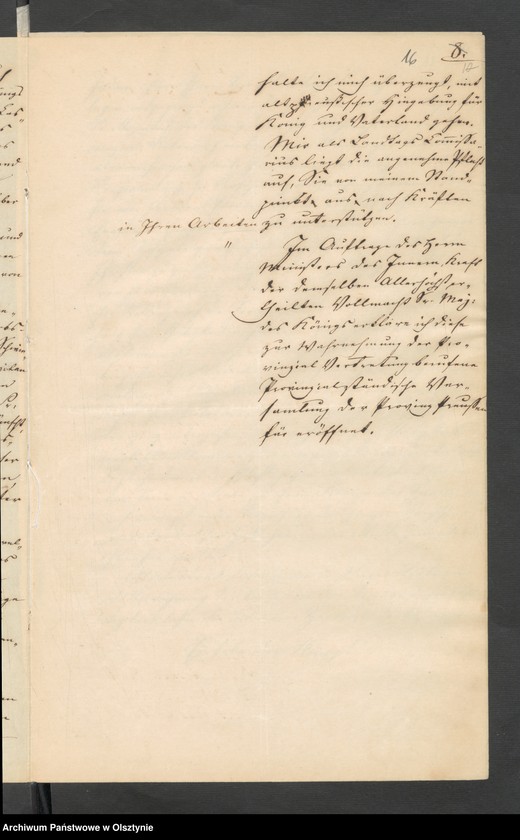 16 8.
halte ich mich überzeugt, mit
altpreußischer Hingebung für
König und Vaterland gehen.
Mir als Landtags Commissa-
rius liegt die angenehme Pflicht
auf, Sie von meinem Stand-
punkte aus nach Kräften
in Ihren Arbeiten zu unterstützen.
"
Im Auftrage des Herrn
Ministers des Innern, Kraft
der demselben Allerhöchst er-
theilten Vollmacht Sr. Maj:
des Königs erkläre ich diese
zur Wahrnehmung der Pro-
vinzial Vertretung berufene
Provinzialständische Ver-
samlung der Provinz Preussen
für eröffnet.
Archiwum Państwowe w Olsztynie